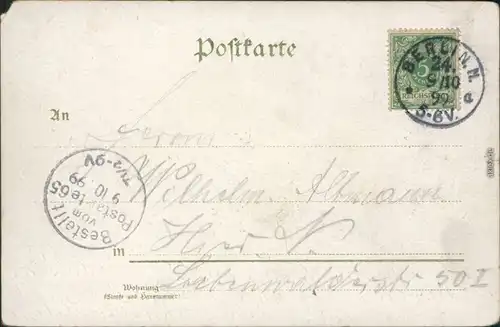 Postkarte
BERLIN. N.
24.
9/10
99
5-6V.
a
5
An
Herrn
Wilhelm Altmann
in
Hier N
Wohnung
(Straße und Hausnummer)
50 I
Bestellt
vom
Postamte 65
9 10 99
7½-9V